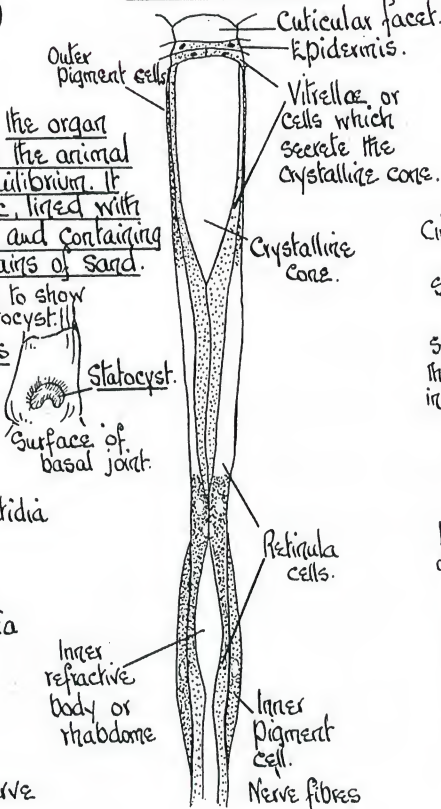 Cuticular facet.
Epidermis.
Outer
pigment cells
Vitrellae or
cells which
secrete the
crystalline cone.
the organ
the animal
uilibrium. It
c, lined with
and containing
ains of Sand.
Crystalline
cone.
to show
ocyst.
Statocyst.
Surface of
basal joint.
tidia
Retinula
cells.
Inner
refractive
body or
rhabdome
Inner
Pigment
cell.
Nerve fibres